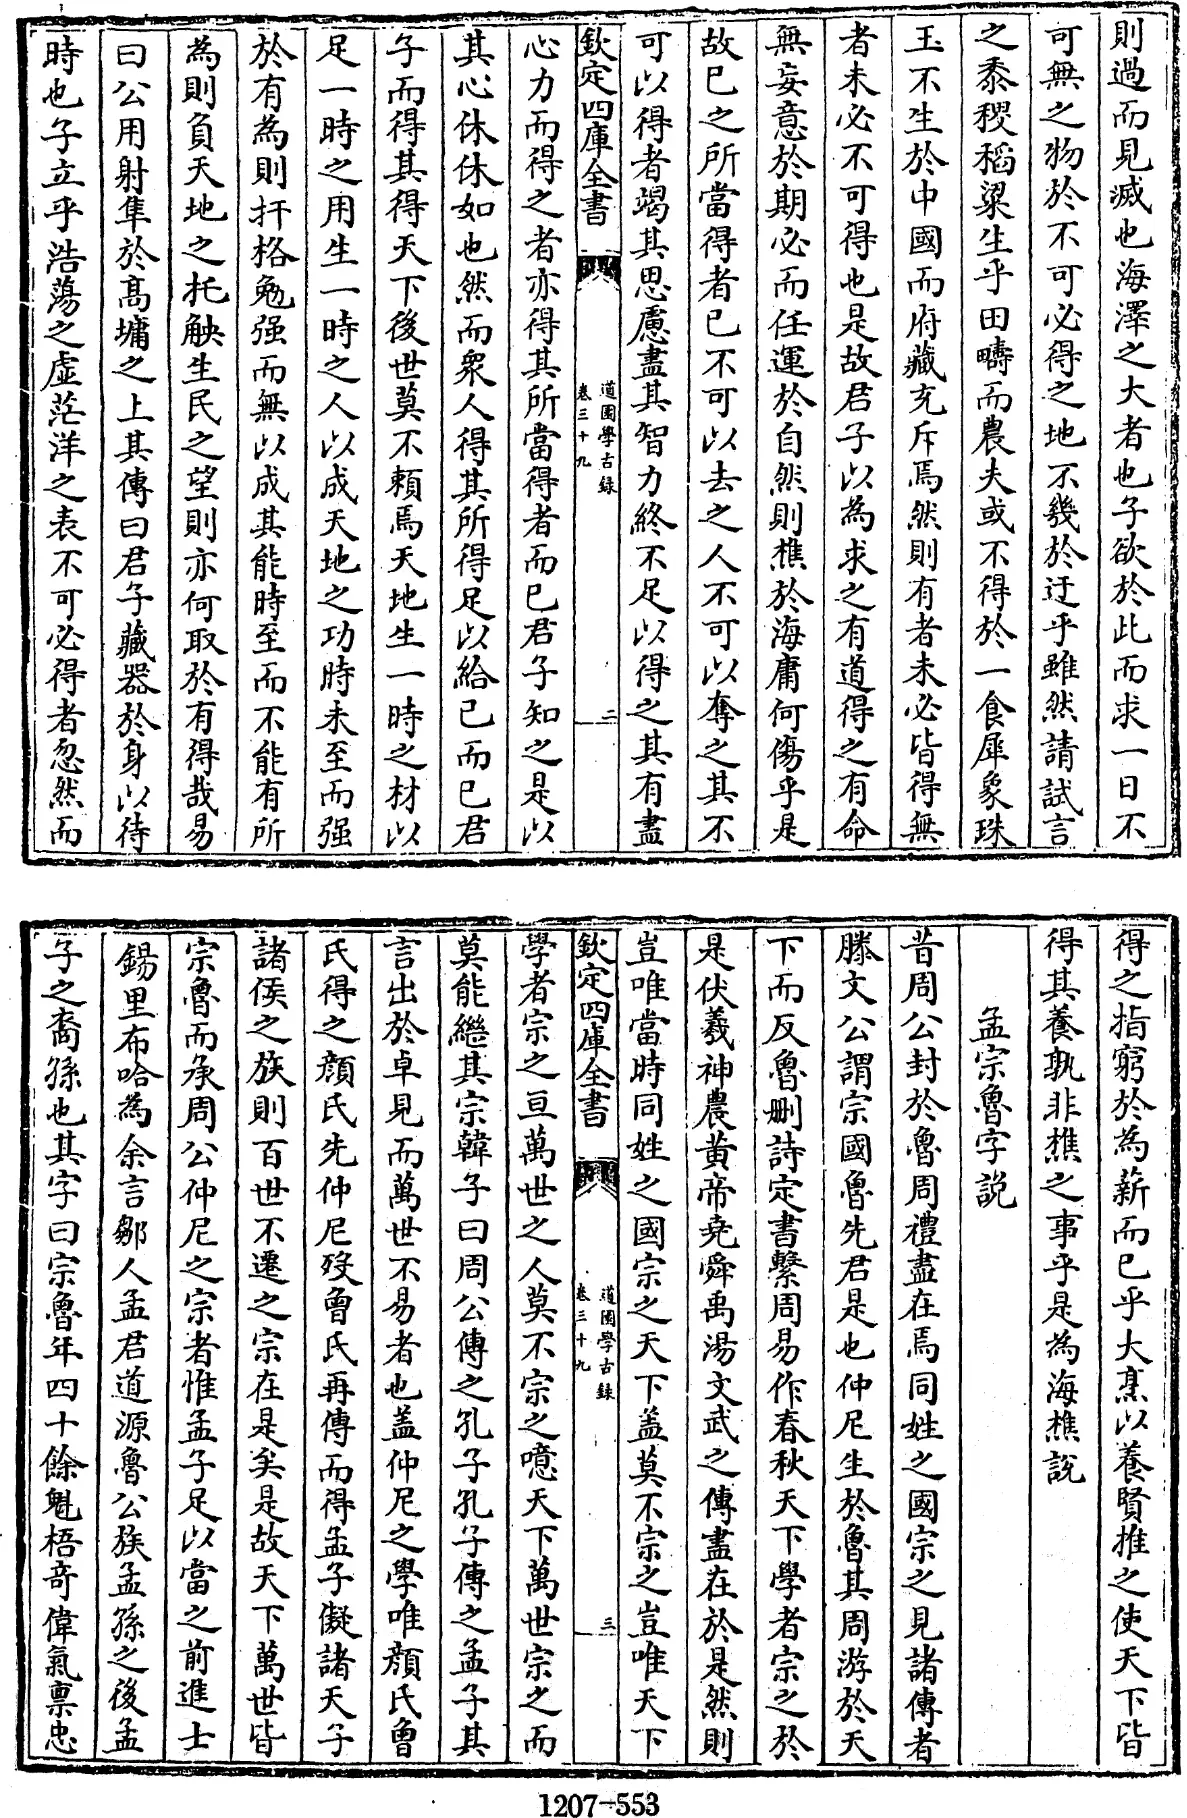 則過而見滅也海澤之大者也子欲於此而求一日不
可無之物於不可必得之地不幾於迂乎雖然請試言
之黍稷稻粱生乎田疇而農夫或不得於一食犀象珠
玉不生於中國而府藏充斥焉然則有者未必皆得無
者未必不可得也是故君子以為求之有道得之有命
無妄意於期必而任運於自然則樵於海庸何傷乎是
故已之所當得者已不可以去之人不可以奪之其不
可以得者竭其思慮盡其智力終不足以得之其有盡
欽定四庫全書
道園學古錄
卷三十九
二
心力而得之者亦得其所當得者而已君子知之是以
其心休休如也然而衆人得其所得足以給己而已君
子而得其得天下後世莫不賴焉天地生一時之材以
足一時之用生一時之人以成天地之功時未至而强
於有為則扞格勉强而無以成其能時至而不能有所
為則負天地之托觖生民之望則亦何取於有得哉易
曰公用射隼於髙墉之上其傳曰君子藏器於身以待
時也子立乎浩蕩之虛茫洋之表不可必得者忽然而
得之指窮於為薪而已乎大烹以養賢推之使天下皆
得其養孰非樵之事乎是為海樵說
孟宗魯字說
昔周公封於魯周禮盡在焉同姓之國宗之見諸傳者
滕文公謂宗國魯先君是也仲尼生於魯其周游於天
下而反魯刪詩定書繫周易作春秋天下學者宗之於
是伏羲神農黄帝堯舜禹湯文武之傳盡在於是然則
豈唯當時同姓之國宗之天下盖莫不宗之豈唯天下
欽定四庫全書
道園學古錄
卷三十九
三
學者宗之亘萬世之人莫不宗之噫天下萬世宗之而
莫能繼其宗韓子曰周公傳之孔子孔子傳之孟子其
言出於卓見而萬世不易者也盖仲尼之學唯顔氏曾
氏得之顔氏先仲尼歿曾氏再傳而得孟子儗諸天子
諸侯之族則百世不遷之宗在是矣是故天下萬世皆
宗魯而承周公仲尼之宗者惟孟子足以當之前進士
錫里布哈為余言鄒人孟君道源魯公族孟孫之後孟
子之裔孫也其字曰宗魯年四十餘魁梧奇偉氣禀忠
1207-553